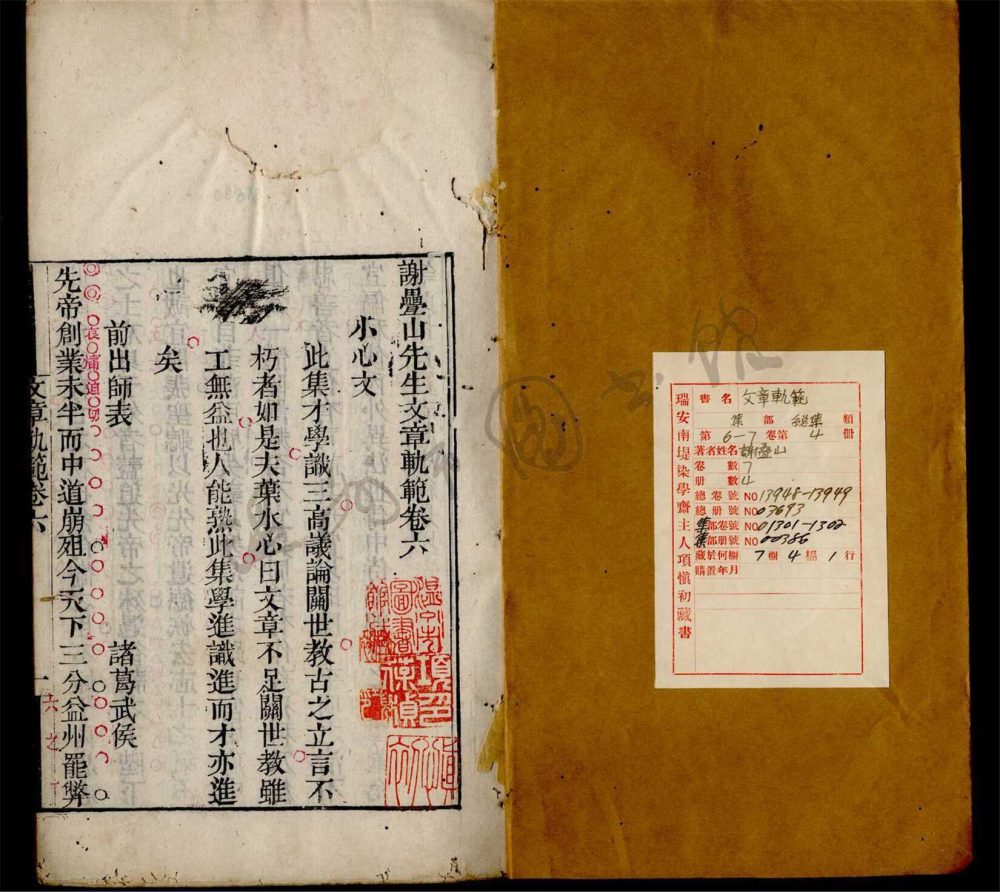 瑞安南堤染學齋主人項慎初藏書
書名 文章軌範
集 部 總集 類
第 6-7 卷第 4 冊
著者姓名 謝疊山
卷數 7
册數 4
總卷號 NO 13948-13949
總册號 NO 03693
集部卷號 NO 01301-1302
集部册號 NO 00386
藏於何櫥 7 櫥 4 槅 1 行
購置年月
謝疊山先生文章軌範卷六
小心文
此集才學識三高議論關世教古之立言不
朽者如是夫葉水心曰文章不足關世教雖
工無益也人能熟此集學進識進而才亦進
矣
前出師表 諸葛武侯
哀痛迫切
先帝創業未半而中道崩殂今天下三分益州罷弊
文章軌範卷六
一
六之